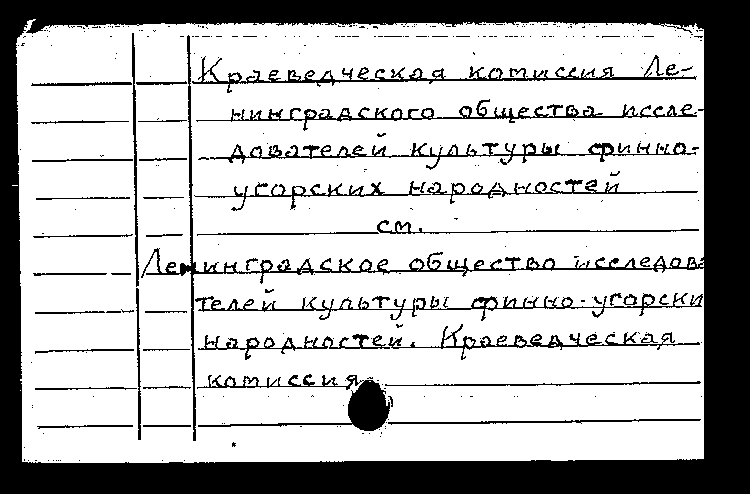 Краеведческая комиссия Ле-
нинградского общества иссле-
дователей культуры финно-
угорских народностей
см.
Ленинградское общество исследова
телей культуры финно-угорски
народностей. Краеведческая
комиссия